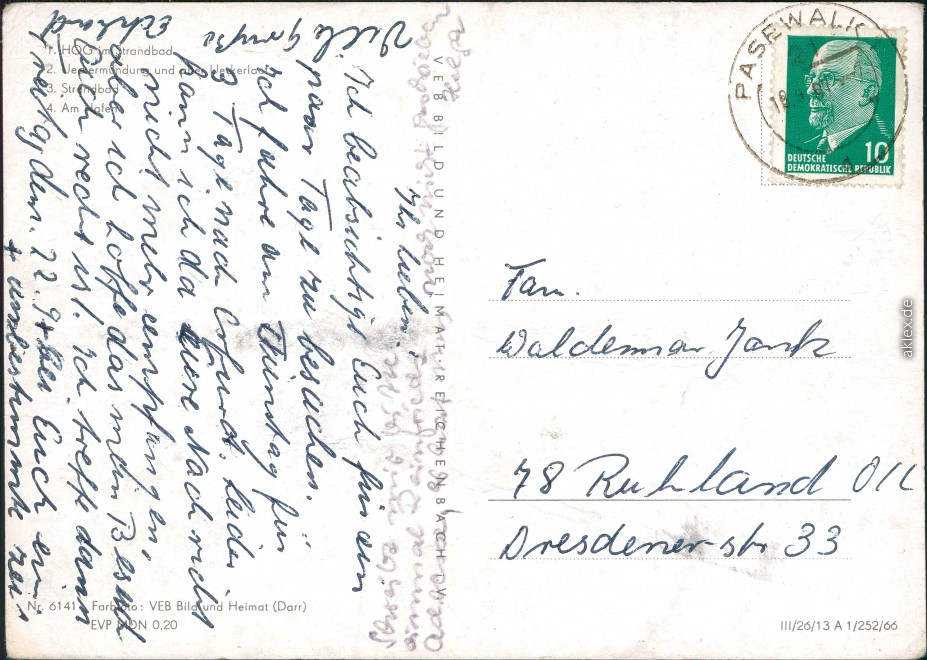 1. HOG im Strandbad
2. Ueckermünde und
3. Strandbad
4. Am Hafen
Ihr Lieben!
Ich beabsichtige Euch für ein
paar Tage zu besuchen.
Ich fahre am Dienstag für
3 Tage nach Erfurt. Leider
kann ich da Euere Nachricht
nicht mehr empfangen,
aber ich hoffe das mein Besuch
Euch recht ist. Ich treff dann
Freitag dem. 22.9+ bei Euch ein
+ unbestimmte Zeit
Viele Grüße
VEB BILD UND HEIMAT REICHENBACH I. V.
PASEWALK
10
DEUTSCHE
DEMOKRATISCHE REPUBLIK
Fam.
Waldemar Jank
78 Ruhland O/L
Dresdener-str 33
Nr. 6141 Farbfoto: VEB Bild und Heimat (Darr)
EVP MDN 0,20
III/26/13 A 1/252/66
aklex.de